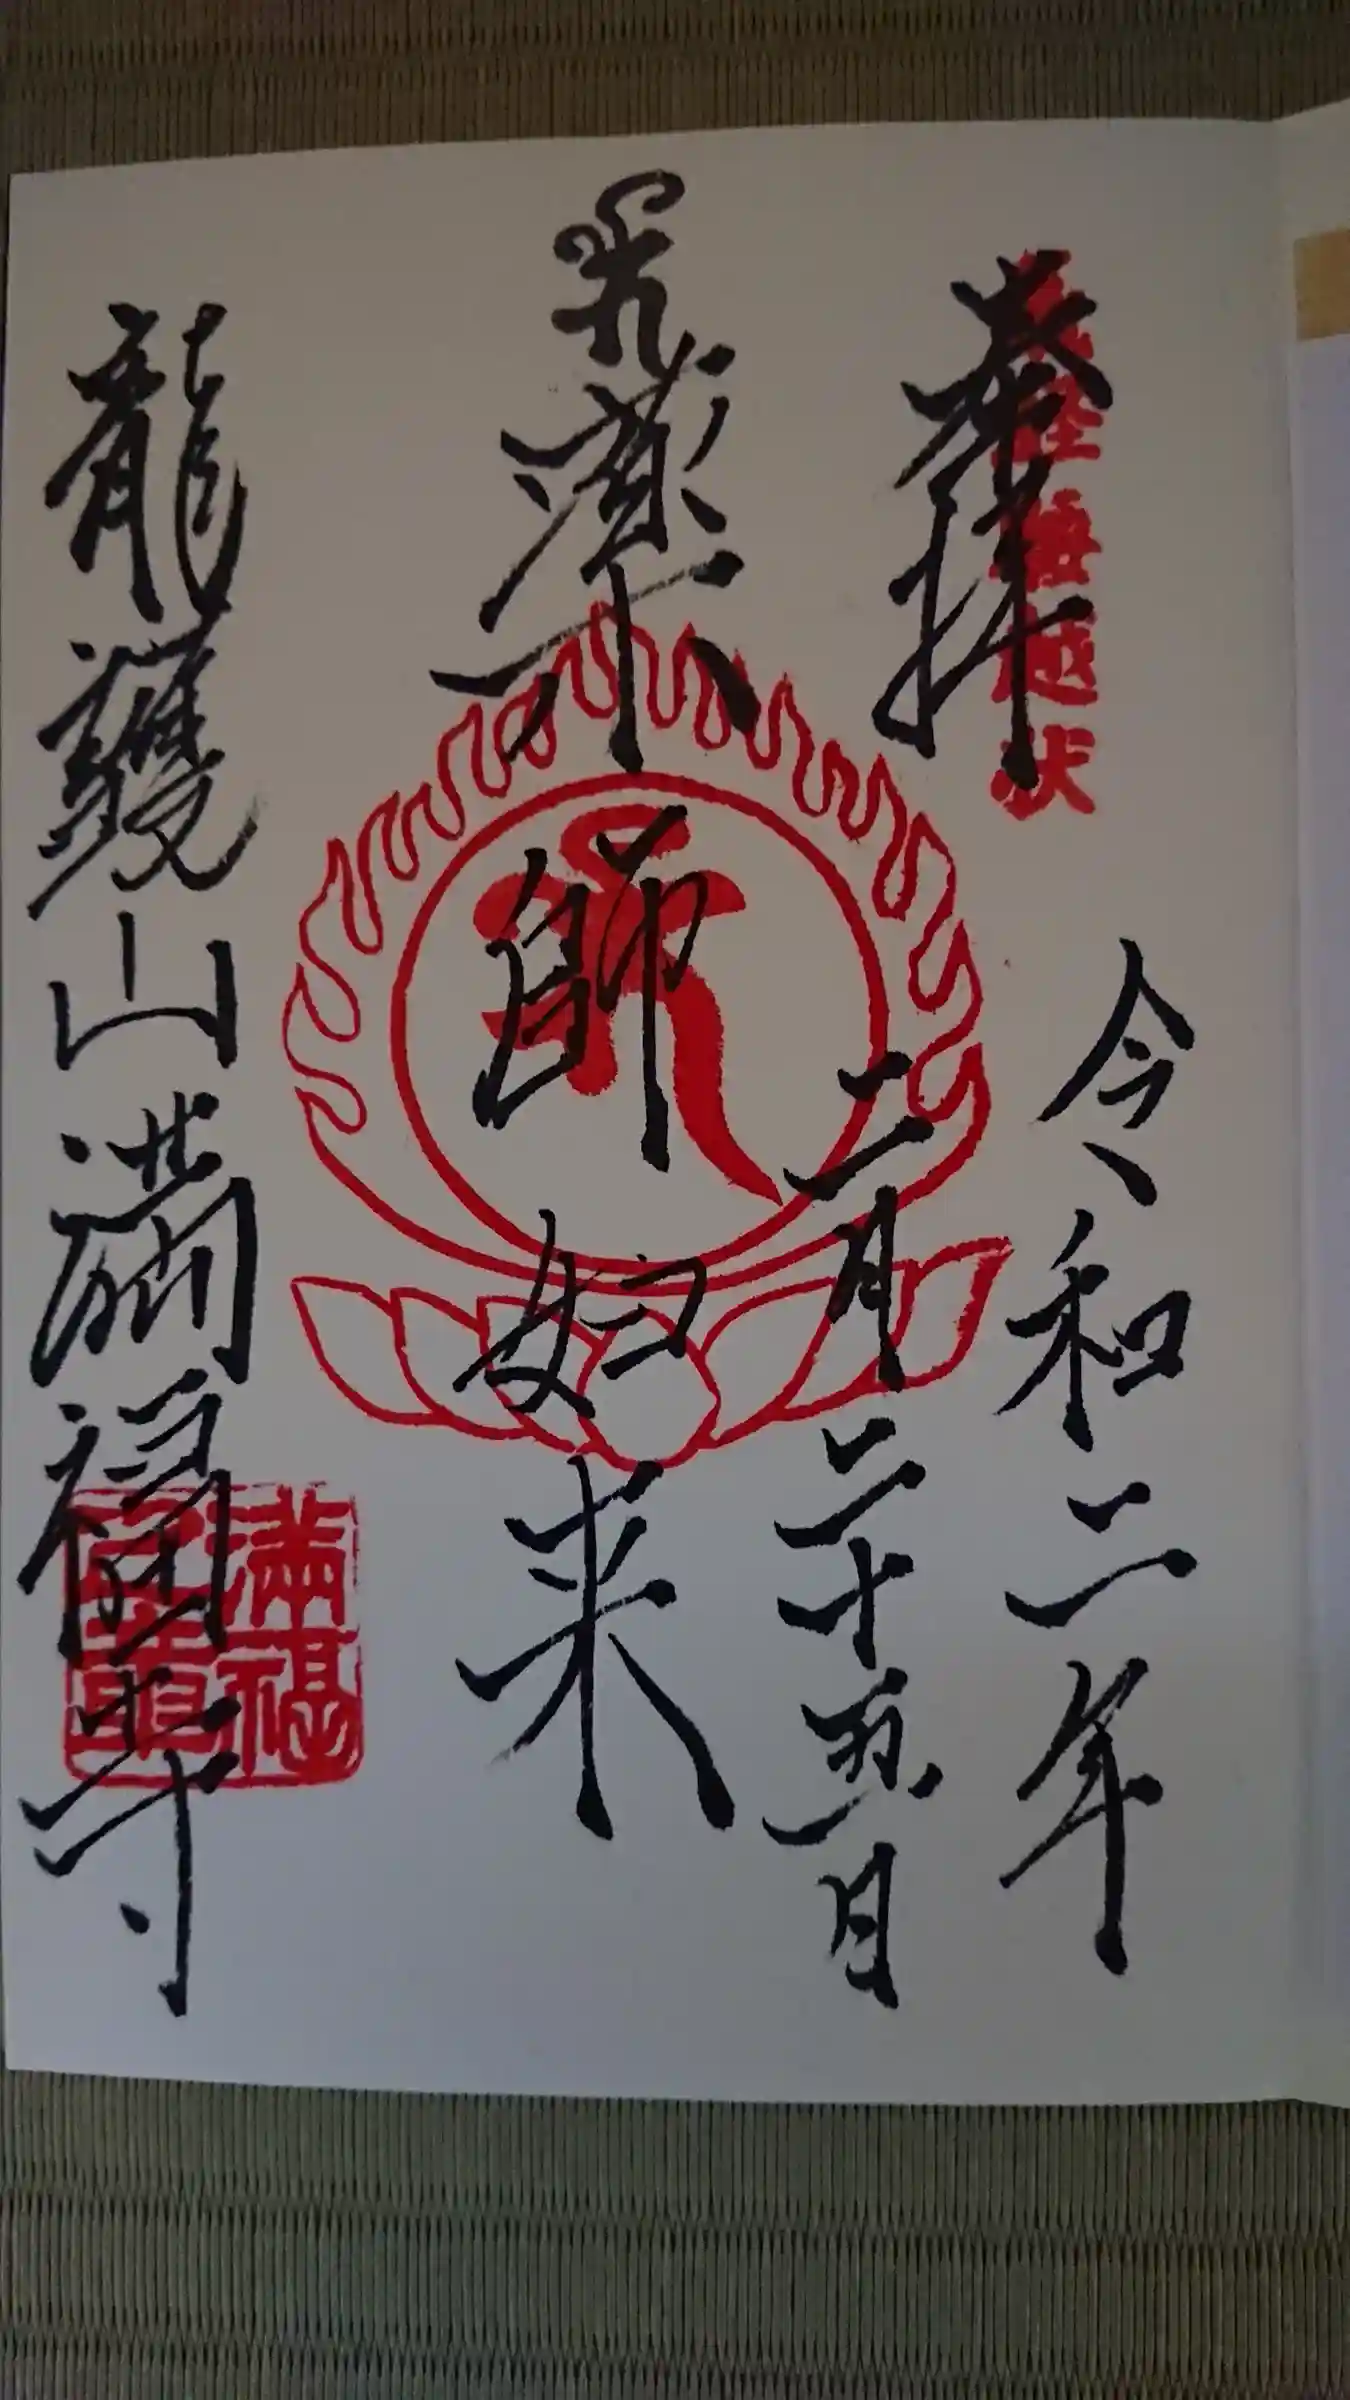 奉拝
令和二年
二月二十五日
薬師如来
龍護山満福寺
満福